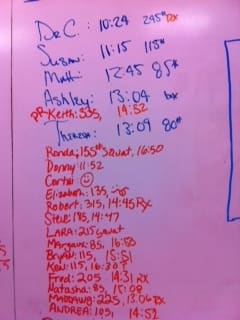 Dr C: 10:24 245# Rx
Susan: 11:15 115#
Matt: 12:45 85#
Ashley: 13:04 box
DR-Keith: 535, 14:52
Theresa: 13:09 80#
Ronda; 155# Squat, 16:50
Donny: 11:52
Cortni ☺
Elizabeth: 135,
Robert: 315, 14:45 Rx
Steve: 185, 14:47
LARA: 215 squat
Margaux: 85, 16:50
Bryan: 115, 15:51
Ken: 115, 16:30
Fred: 205 14:31 Rx
Natasha: 85, 15:08
225, 13:06 Rx
ANDREA: 105, 14:52